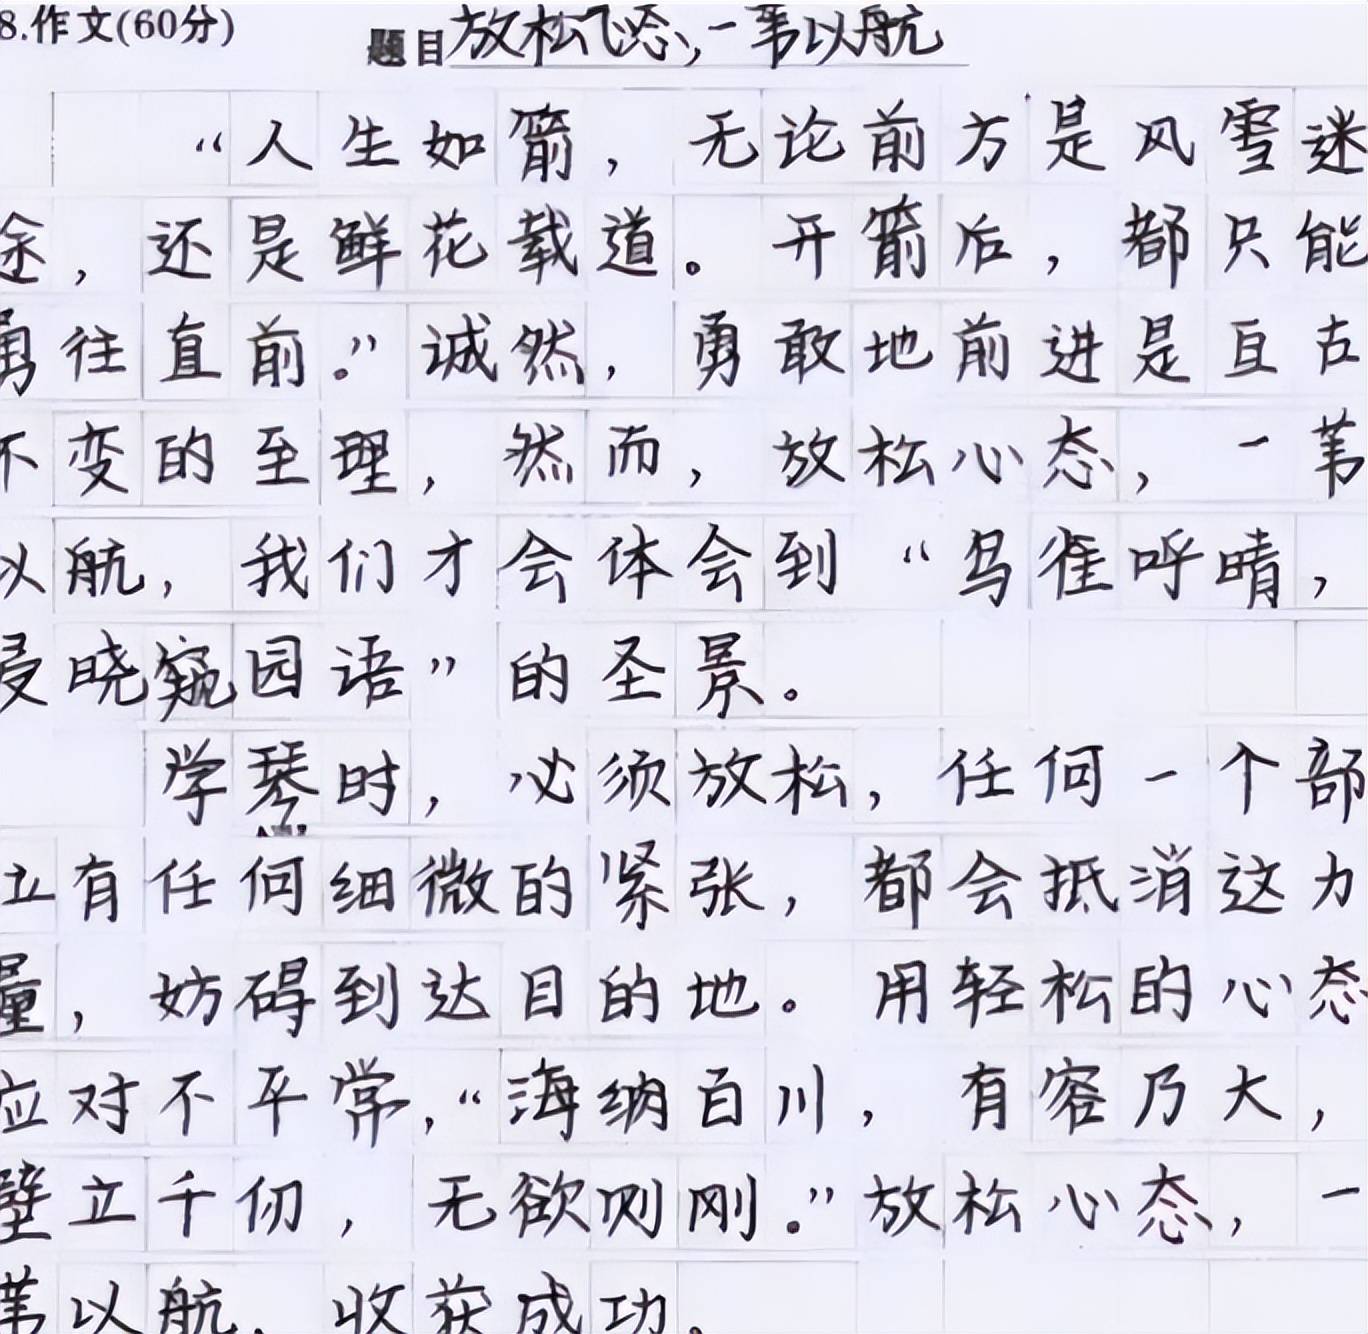 8.作文(60分) 题目 放松心态，一苇以航
“人生如箭，无论前方是风雪迷
途，还是鲜花载道。开箭后，都只能
勇往直前。”诚然，勇敢地前进是亘古
不变的至理，然而，放松心态，一苇
以航，我们才会体会到“鸟雀呼晴，
侵晓窥园语”的圣景。
学琴时，必须放松，任何一个部
位有任何细微的紧张，都会抵消这力
量，妨碍到达目的地。用轻松的心态
应对不平常，“海纳百川，有容乃大，
壁立千仞，无欲则刚。”放松心态，一
苇以航，收获成功。